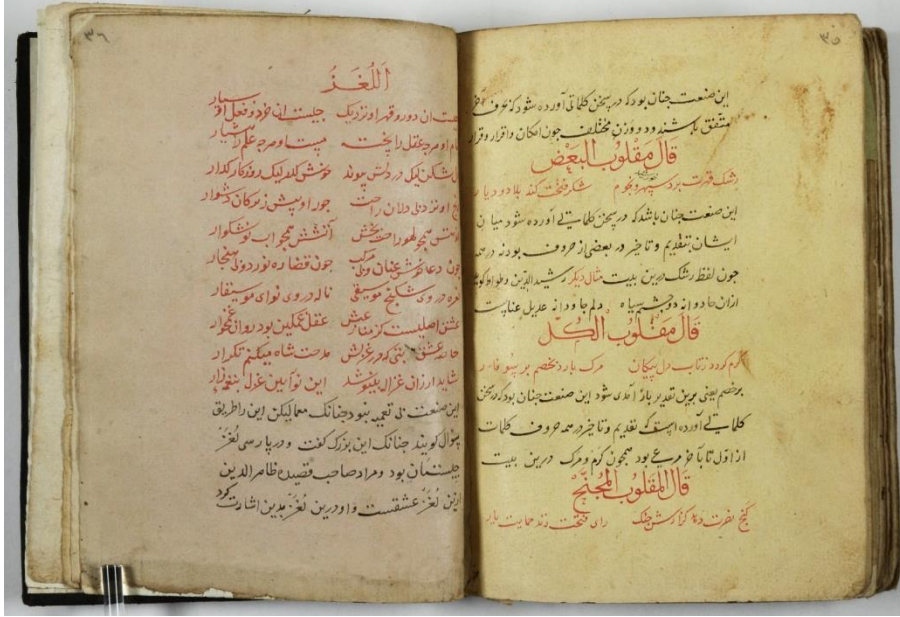 ٣٥
این صنعت چنان بود که در سخن کلماتی آورده شود که حرف
متفق باشند و در وزن مختلف چون امکان واقرار وقرار
قال مقلوب البعض
رشک قدرت برد سپهر ونجوم شکر فتحت کند بلاد و دیار
این صنعت چنان باشد که در سخن کلماتی آورده شود میان
ایشان بتقدیم و تاخیر در بعضی از حروف بود نه در همه
چون لفظ رشک درین بیت مثال دیکر رشید الدین وطواط کوید
ازان جادوانه دو چشم سیاه دلم جاودانه عدیل عناست
قال مقلوب الکل
کرم کردد زتاب دل پیکان مرک بارد بخصم بر
برخصم یعنی برین تقدیر بار آمدی شود این صنعت چنان بود که در سخن
کلماتی آورده است که تقدیم و تاخیر در همه حروف کلمات
از اول تا بآخر مرعی بود همچون کرم و مرک درین بیت
قال المقلوب المجنح
کنج نصرت دهد کزارش جنک رای فتحت زند حمایت یار
٣٦
اللغز
ان دورو قهر اونزدیک چیست ان خرد و فعل او بسیار
او مرجه عقل را پخته مست او مرجه علم را هشیار
شکن لیک در دلش پیوند خوش کذر لیک روزکار کذار
او نزد بی دلان راحت جور او پیش زیرکان دشوار
همچو لهو راحت بخش آتشش همچو آب نوشکوار
چون دعا خوش عنان وبی مرکب چون قضا ره نورد وبی هنجار
در وی شکنج موسیقی ناله در وی نوای موسیقار
عشق اصلیست کز منازعش عقل غمکین بود روان غمخوار
خاصه عشق بتی که در غزلش مدحت شاه میکنم تکرار
شاید ار زان غزاله بنیوشد این نوآیین غزل بنغمه زار
این صنعت بی تعمیه نبود چنانک معما لیکن این را طریق
سؤال کویند چنانک این بزرک کفت و در پارسی لغز
چیستمان بود و مراد صاحب قصیده ظاهر الدین
ازین لغز عشقست و او درین لغز بدین اشارت کرد